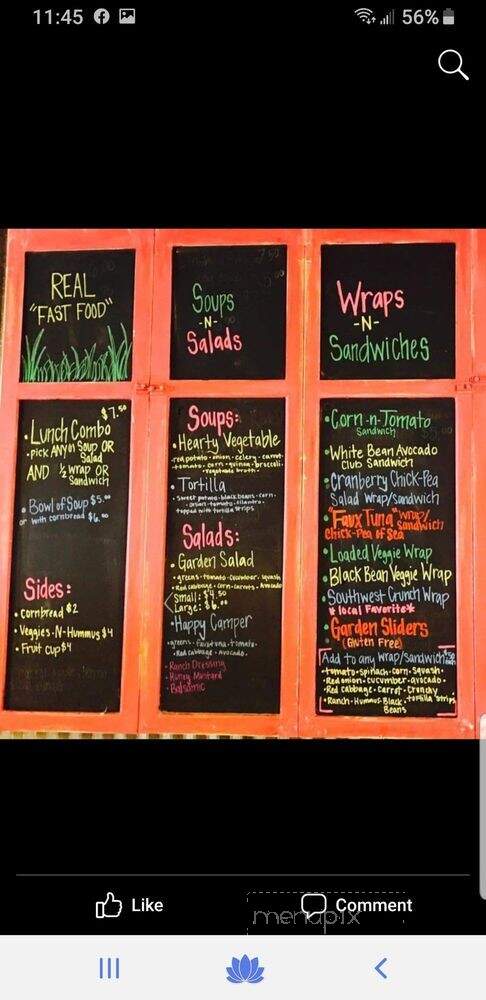 11:45
56%
REAL
"FAST FOOD"
Soups
-N-
Salads
Wraps
-N-
Sandwiches
$7.50
• Lunch Combo
• pick ANY Soup OR
Salad
AND ½ wrap OR
Sandwich
• Bowl of Soup $5.00
or with cornbread $6.00
Sides:
• cornbread $2
• Veggies-N-Hummus $4
• Fruit cup $4
Soups:
• Hearty Vegetable
red potato - onion - celery - carrot -
tomato - corn - quinoa - broccoli -
vegetable broth -
• Tortilla
• sweet potato - black bean - corn -
onion - tomato - cilantro -
topped with tortilla strips
Salads:
• Garden Salad
• greens - tomato - cucumber - squash
• Red cabbage - corn - carrots - Avocado
Small: $4.50
Large: $6.00
• Happy Camper
greens - faux tuna - tomato -
• Red cabbage - Avocado -
• Ranch Dressing
• Honey Mustard
• Balsamic
• Corn-n-Tomato
Sandwich
• White Bean Avocado
Club Sandwich
• Cranberry Chick-Pea
Salad Wrap/Sandwich
• "Faux Tuna" wrap/
Sandwich
Chick-Pea of Sea
• Loaded Veggie Wrap
• Black Bean Veggie Wrap
• Southwest Crunch Wrap
* local Favorite*
• Garden Sliders
(Gluten Free)
Add to any wrap/sandwich .50
• tomato - spinach - corn - squash -
• Red onion - cucumber - avocado -
• Red cabbage - carrot - crunchy
tortilla strips
• Ranch - Hummus - Black
Beans
Like
Comment
menupix